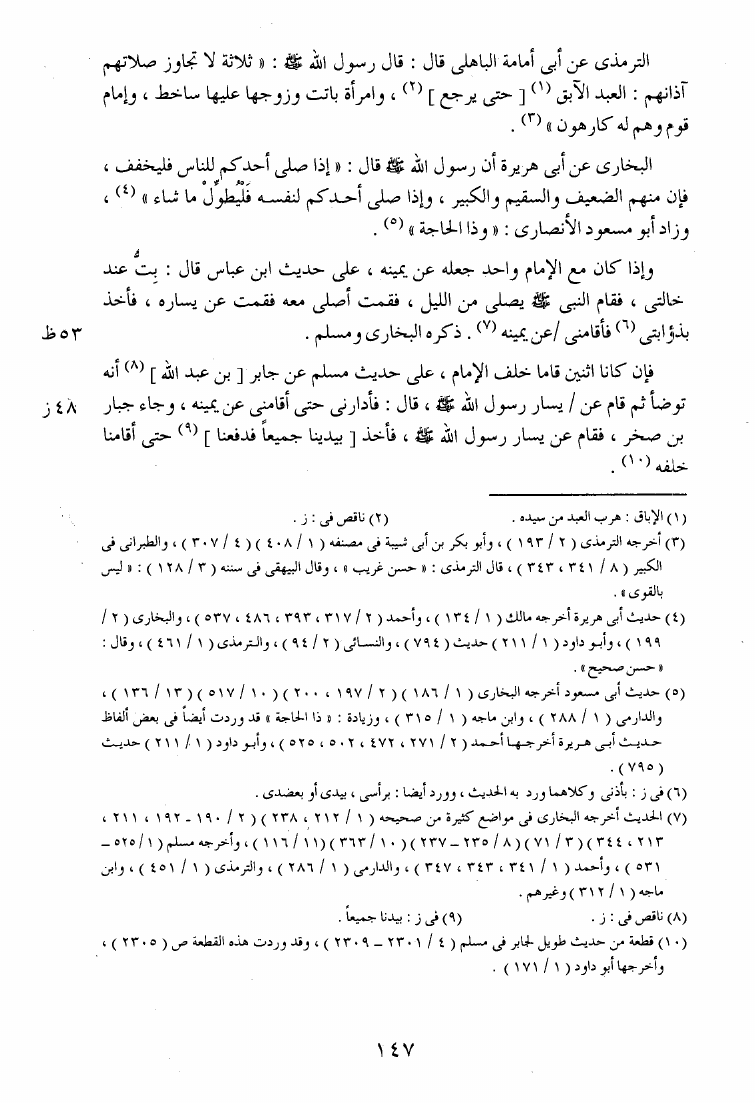 الترمذى عن أبى أمامة الباهلى قال : قال رسول الله ﷺ : « ثلاثة لا تجاوز صلاتهم
آذانهم : العبد الآبق (١) [ حتى يرجع ] (٢) ، وامرأة باتت وزوجها عليها ساخط ، وإمام
قوم وهم له كارهون » (٣) .
البخارى عن أبى هريرة أن رسول الله ﷺ قال : « إذا صلى أحدكم للناس فليخفف ،
فإن منهم الضعيف والسقيم والكبير ، وإذا صلى أحدكم لنفسه فَلْيُطوِّلْ ما شاء » (٤) ،
وزاد أبو مسعود الأنصارى : « وذا الحاجة » (٥) .
وإذا كان مع الإمام واحد جعله عن يمينه ، على حديث ابن عباس قال : بِتُّ عند
خالتى ، فقام النبى ﷺ يصلى من الليل ، فقمت أصلى معه فقمت عن يساره ، فأخذ
بذؤابتى (٦) فأقامنى /عن يمينه (٧) . ذكره البخارى ومسلم . ٥٣ ظ
فإن كانا اثنين قاما خلف الإمام ، على حديث مسلم عن جابر [ بن عبد الله ] (٨) أنه
توضأ ثم قام عن / يسار رسول الله ﷺ ، قال : فأدارنى حتى أقامنى عن يمينه ، وجاء جبار ٤٨ ز
بن صخر ، فقام عن يسار رسول الله ﷺ ، فأخذ [ بيدينا جميعاً فدفعنا ] (٩) حتى أقامنا
خلفه (١٠) .
(١) الإباق : هرب العبد من سيده . (٢) ناقص فى : ز .
(٣) أخرجه الترمذى ( ٢ / ١٩٣ ) ، وأبو بكر بن أبى شيبة فى مصنفه ( ١ / ٤٠٨ ) ( ٤ / ٣٠٧ ) ، والطبرانى فى
الكبير ( ٨ / ٣٤١ ، ٣٤٣ ) ، قال الترمذى : « حسن غريب » ، وقال البيهقى فى سننه ( ٣ / ١٢٨ ) : « ليس
بالقوى » .
(٤) حديث أبى هريرة أخرجه مالك ( ١ / ١٣٤ ) ، وأحمد ( ٢ / ٣١٧ ، ٣٩٣ ، ٤٨٦ ، ٥٣٧ ) ، والبخارى ( ٢ /
١٩٩ ) ، وأبو داود ( ١ / ٢١١ ) حديث ( ٧٩٤ ) ، والنسائى ( ٢ / ٩٤ ) ، والترمذى ( ١ / ٤٦١ ) ، وقال :
« حسن صحيح » .
(٥) حديث أبى مسعود أخرجه البخارى ( ١ / ١٨٦ ) ( ٢ / ١٩٧ ، ٢٠٠ ) ( ١٠ / ٥١٧ ) ( ١٣ / ١٣٦ ) ،
والدارمى ( ١ / ٢٨٨ ) ، وابن ماجه ( ١ / ٣١٥ ) ، وزيادة : « ذا الحاجة » قد وردت أيضاً فى بعض ألفاظ
حديث أبى هريرة أخرجها أحمد ( ٢ / ٢٧١ ، ٤٧٢ ، ٥٠٢ ، ٥٢٥ ) ، وأبو داود ( ١ / ٢١١ ) حديث
( ٧٩٥ ) .
(٦) فى ز : بأذنى وكلاهما ورد به الحديث ، وورد أيضا : برأسى ، بيدى أو بعضدى .
(٧) الحديث أخرجه البخارى فى مواضع كثيرة من صحيحه ( ١ / ٢١٢ ، ٢٣٨ ) ( ٢ / ١٩٠ - ١٩٢ ، ٢١١ ،
٢١٣ ، ٣٤٤ ) ( ٣ / ٧١ ) ( ٨ / ٢٣٥ – ٢٣٧ ) ( ١٠ / ٣٦٣ ) ( ١١ / ١١٦ ) ، وأخرجه مسلم ( ١ / ٥٢٥ –
٥٣١ ) ، وأحمد ( ١ / ٣٤١ ، ٣٤٣ ، ٣٤٧ ) ، والدارمى ( ١ / ٢٨٦ ) ، والترمذى ( ١ / ٤٥١ ) ، وابن
ماجه ( ١ / ٣١٢ ) وغيرهم .
(٨) ناقص فى : ز . (٩) فى ز : بيدنا جميعاً .
(١٠) قطعة من حديث طويل لجابر فى مسلم ( ٤ / ٢٣٠١ – ٢٣٠٩ ) ، وقد وردت هذه القطعة ص ( ٢٣٠٥ ) ،
وأخرجها أبو داود ( ١ / ١٧١ ) .
١٤٧